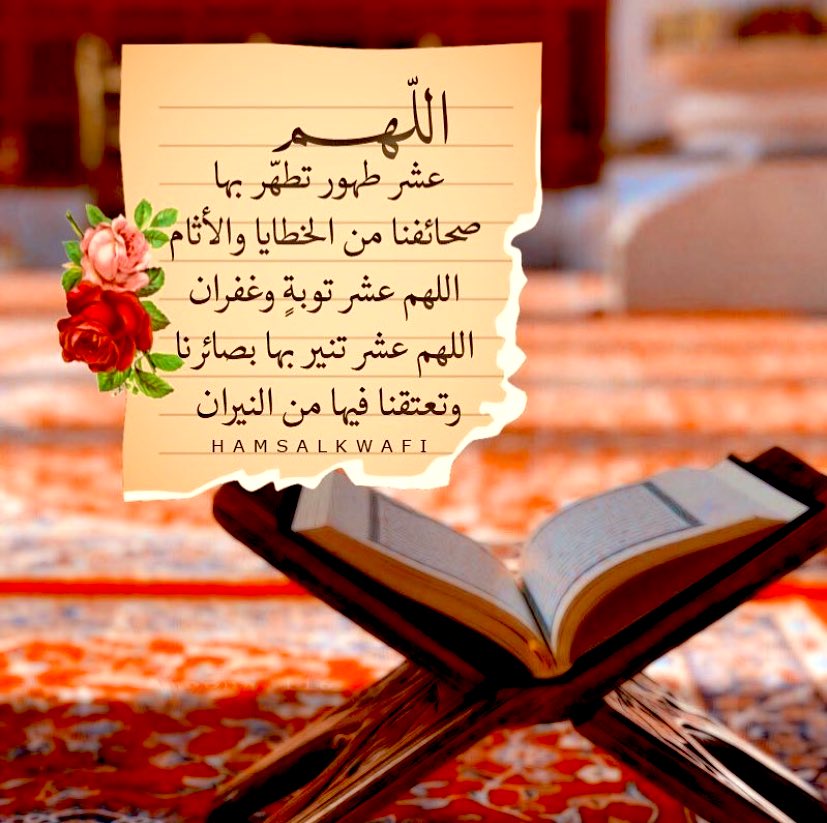 اللّهم
عشر طهور تطهّر بها
صحائفنا من الخطايا والأثام
اللهم عشر توبةٍ وغفران
اللهم عشر تنير بها بصائرنا
وتعتقنا فيها من النيران
HAMSALKWAFI